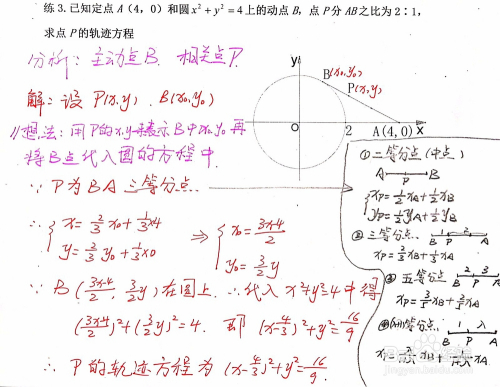 练 3.已知定点 A（4，0）和圆 x²+y²=4 上的动点 B，点 P 分 AB 之比为 2：1，
求点 P 的轨迹方程
分析：主动点B. 相关点P.
解：设 P(x,y) . B(x₀,y₀)
想法：用P的x.y表示B中x₀.y₀再
将B点代入圆的方程中.
∵ P为BA 三等分点.
∴ { x=2/3 x₀+1/3×4
y=2/3 y₀+1/3×0
⇒ { x₀=(3x-4)/2
y₀=3/2 y
∵ B ( (3x-4)/2 , 3/2 y ) 在圆上. ∴代入 x²+y²=4 中得
((3x-4)/2)²+(3/2 y)²=4. 即 (x-4/3)²+y²=16/9
∴ P的轨迹方程为 (x-4/3)²+y²=16/9.
y
B(x₀,y₀)
P(x,y)
O
2
A(4,0) x
① 二等分点（中点）
A P B
{ xP=1/2 xA+1/2 xB
yP=1/2 yA+1/2 yB
② 三等分点. 1 2
B P A
xP=2/3 xB+1/3 xA
五等分点 2 3
B P A
xP=3/5 xB+2/5 xA
等分点. 1 λ
B P A
Baidu 经验
jingyan.baidu.com